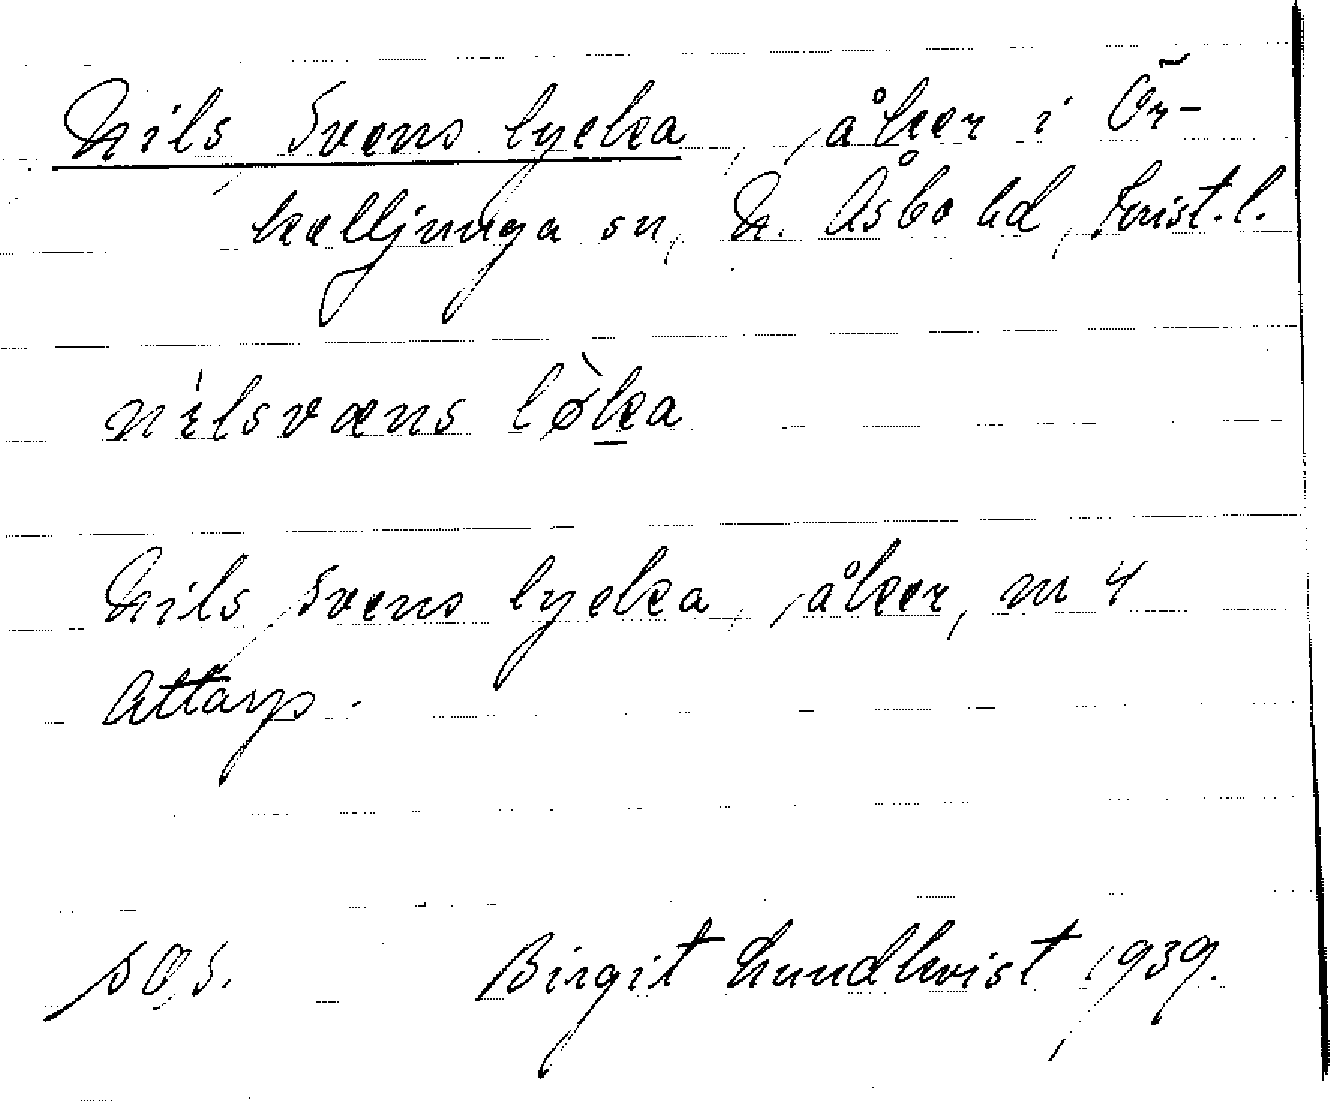 Nils Svens lycka, åker i Ör-
kelljunga sn, N. Åsbo hd, Krist. l.
nilsvæns løka
Nils Svens lycka, åker, nr 4
Attarp.
SOS. Birgit Lundkvist 1939.